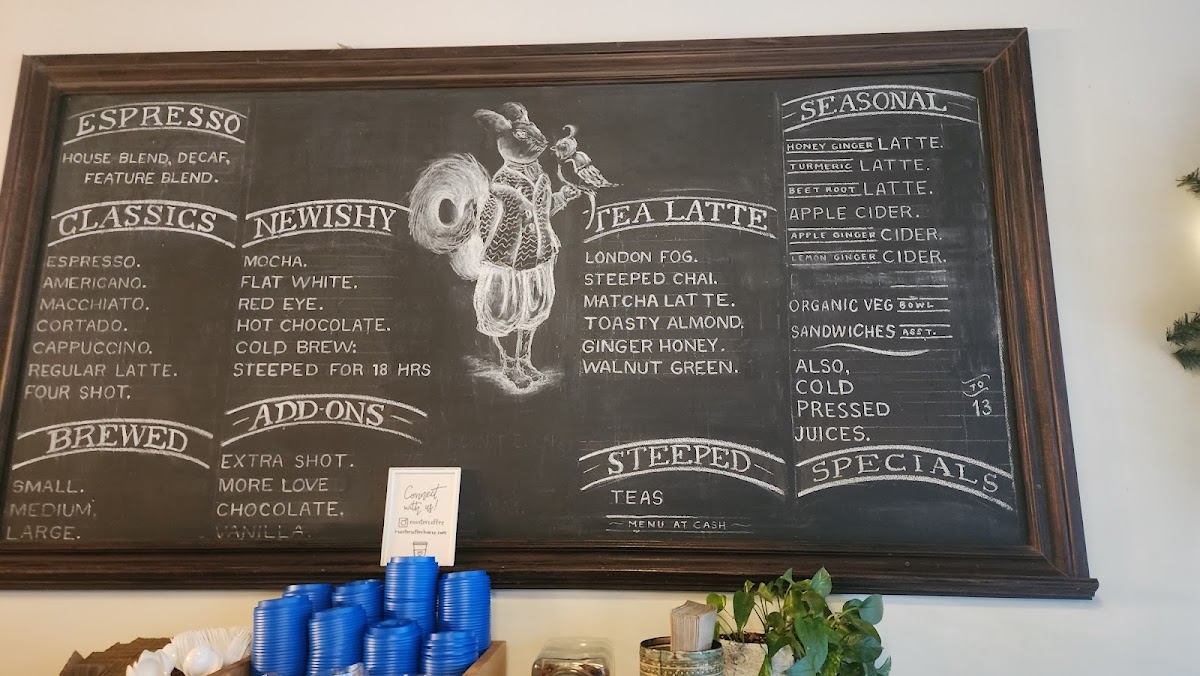 ESPRESSO
HOUSE BLEND, DECAF,
FEATURE BLEND.
CLASSICS
ESPRESSO.
AMERICANO.
MACCHIATO.
CORTADO.
CAPPUCCINO.
REGULAR LATTE.
FOUR SHOT.
BREWED
SMALL.
MEDIUM.
LARGE.
NEWISHY
MOCHA.
FLAT WHITE.
RED EYE.
HOT CHOCOLATE.
COLD BREW:
STEEPED FOR 18 HRS
ADD-ONS
EXTRA SHOT.
MORE LOVE
CHOCOLATE.
VANILLA.
Connect
with us!
TEA LATTE
LONDON FOG.
STEEPED CHAI.
MATCHA LATTE.
TOASTY ALMOND.
GINGER HONEY.
WALNUT GREEN.
STEEPED
TEAS
MENU AT CASH
SEASONAL
HONEY GINGER LATTE.
TURMERIC LATTE.
BEET ROOT LATTE.
APPLE CIDER.
APPLE GINGER CIDER.
LEMON GINGER CIDER.
ORGANIC VEG BOWL
SANDWICHES ASST.
ALSO,
COLD TO
PRESSED 13
JUICES.
SPECIALS